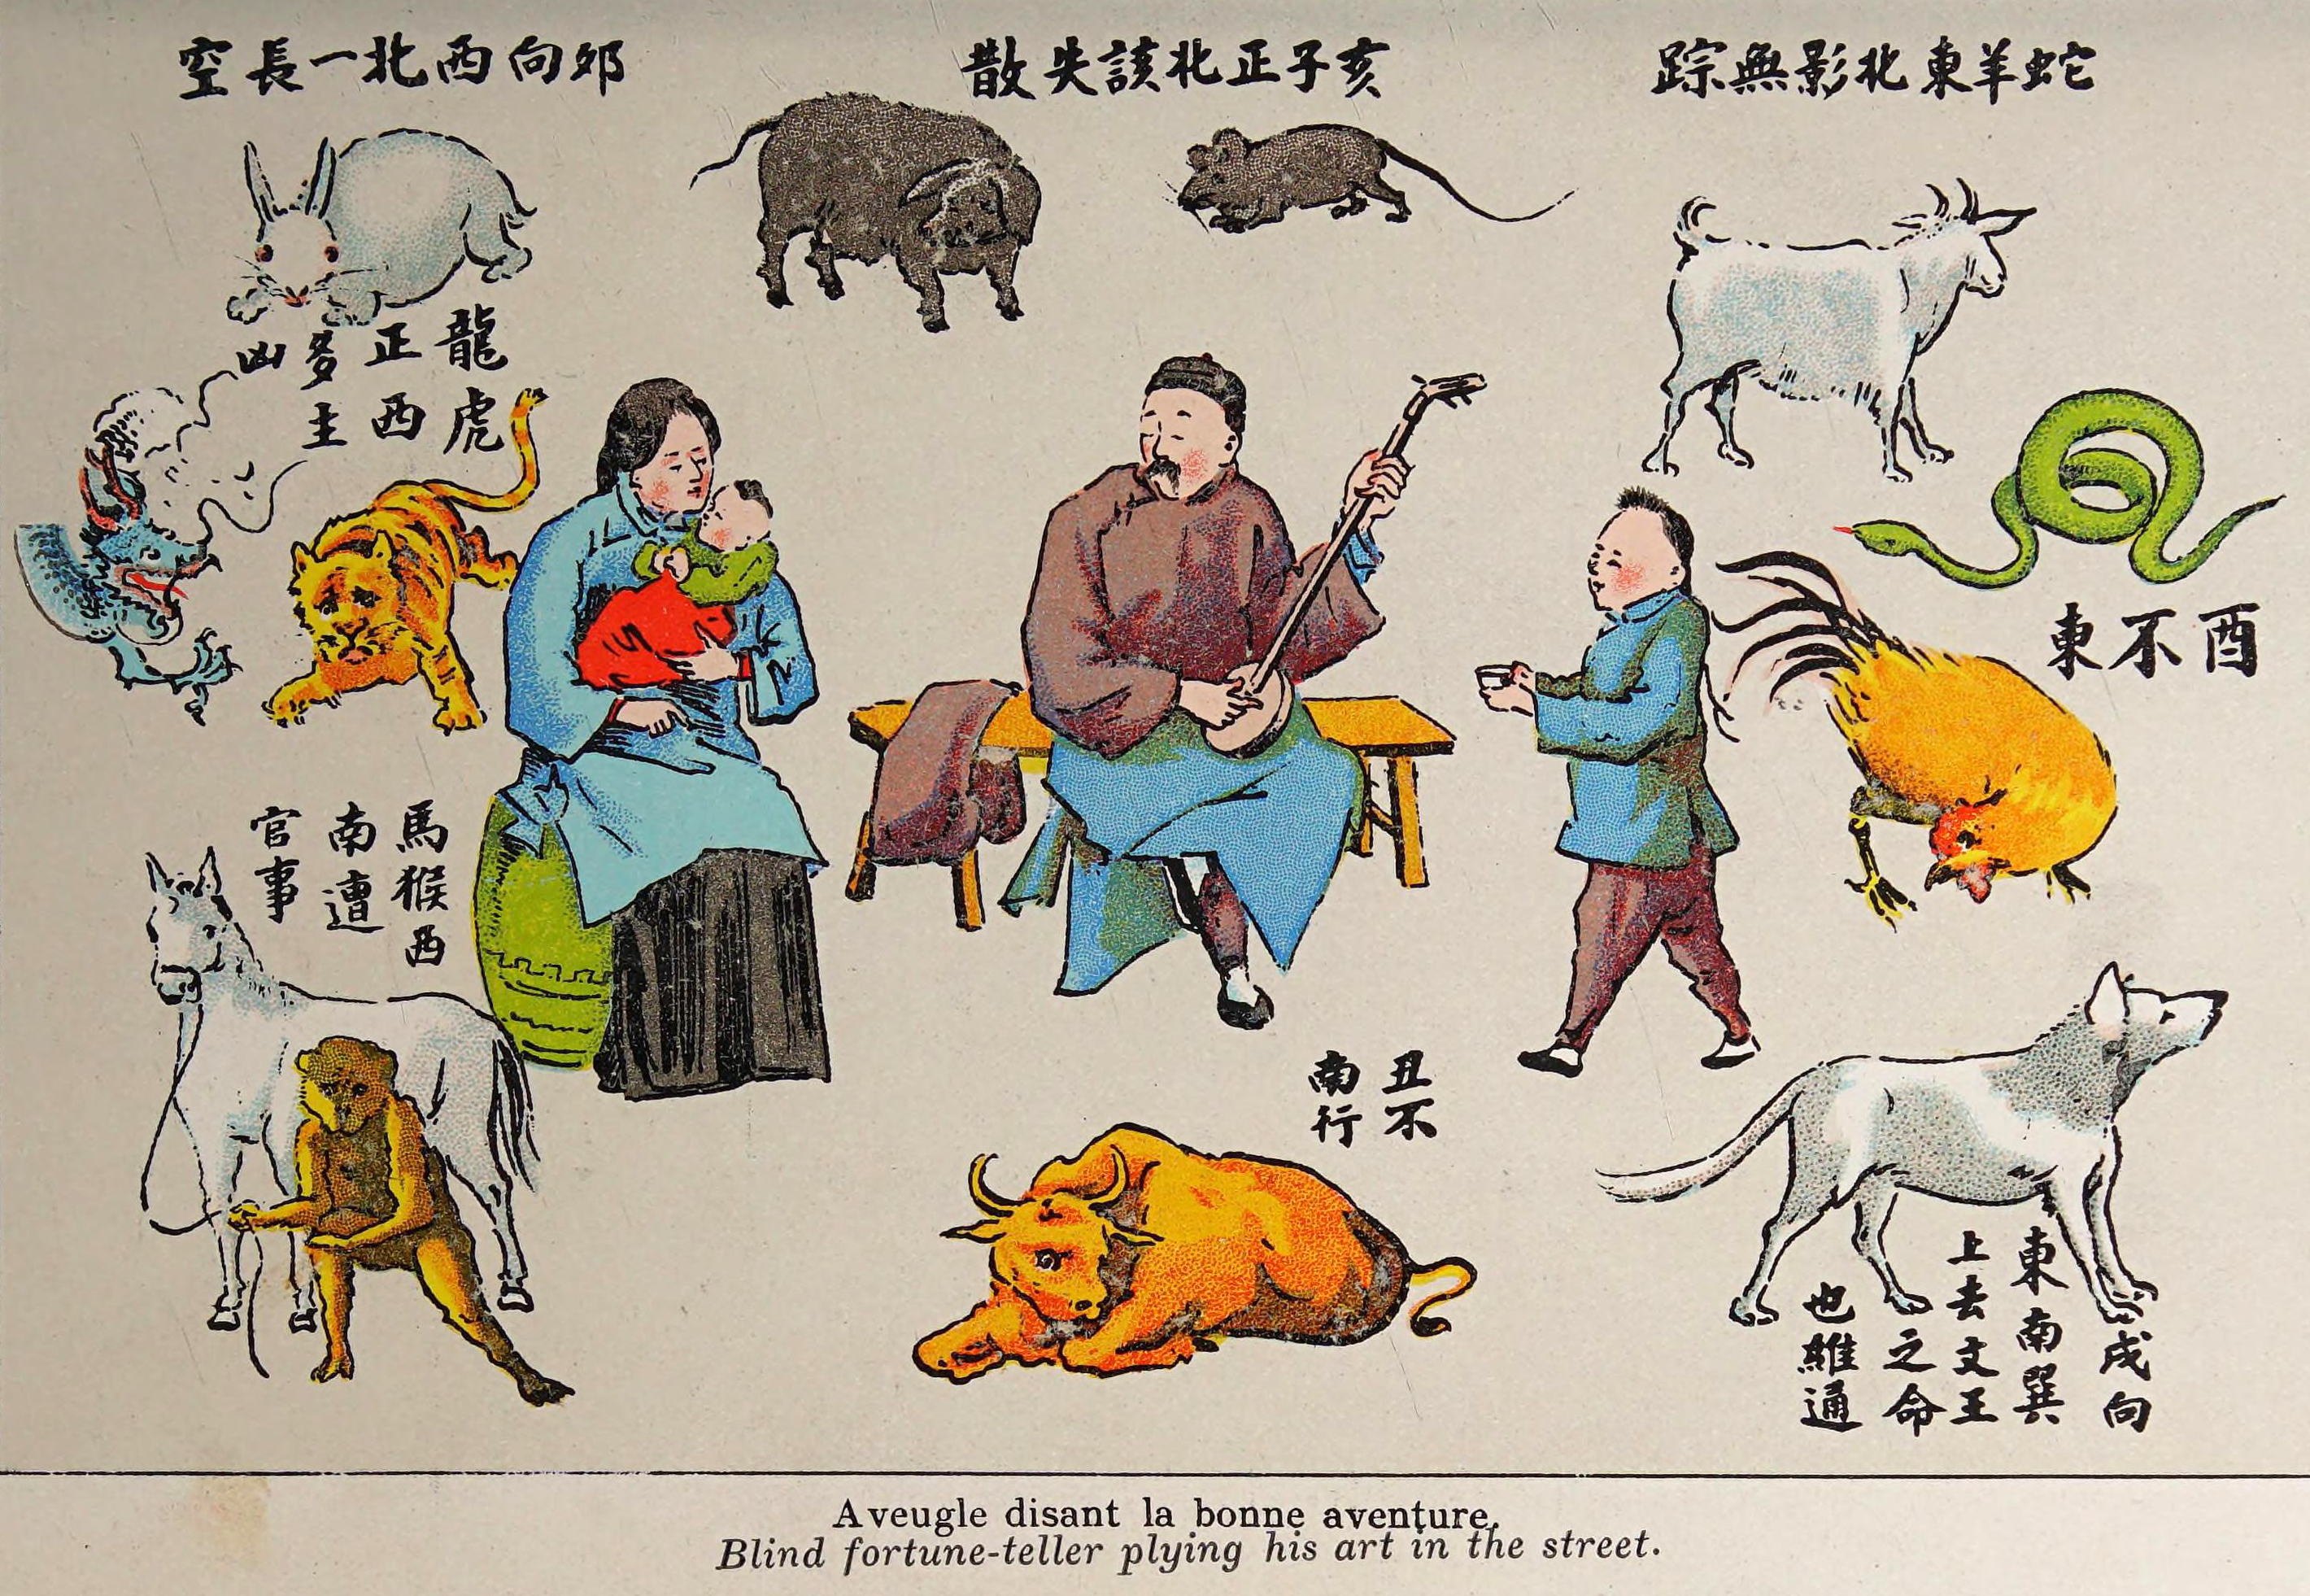 蛇羊東北影無踪
亥子正北該失散
卯向西北一長空
龍虎
正西
多主
凶
酉不東
馬猴西
南遭
官事
丑不
南行
戌向
東南巽
上去文王
之命
也維通
Aveugle disant la bonne aventure.
Blind fortune-teller plying his art in the street.